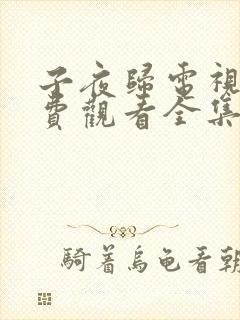 子夜歸電視
費觀看全集
騎着烏龜看朝